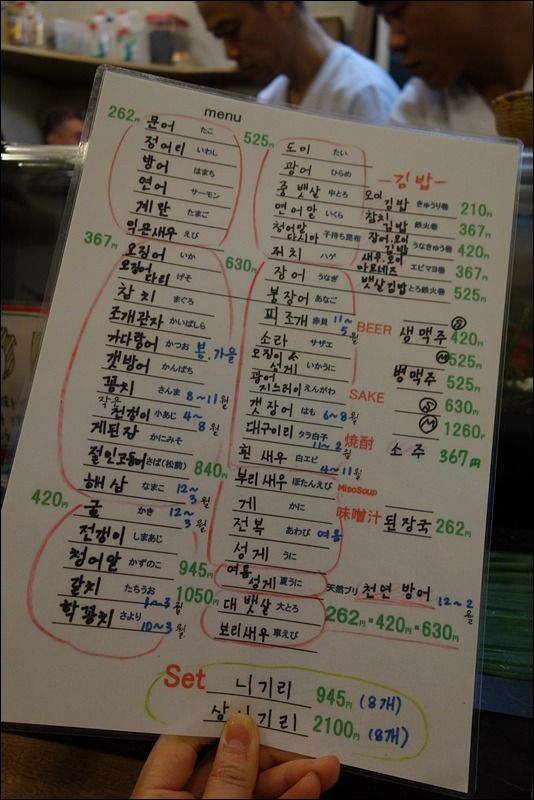 menu
262円
문어 たこ
정어리 いわし
방어 はまち
연어 サーモン
계란 たまご
익은새우 えび
367円
오징어 いか
오징어다리 げそ
참치 まぐろ
조개관자 かいばしら
가다랑어 かつお 봄.가을
갯방어 かんぱち
꽁치 さんま 8~11月
작은전갱이 小あじ 4~8월
게된장 かにみそ
절인고등어 さば(松前)
해삼 なまこ 12~3월
420円
굴 かき 12~3월
전갱이 しまあじ
청어알 かずのこ
갈치 たちうお
학꽁치 さより 10~3月
525円
도미 たい
광어 ひらめ
중뱃살 中とろ
연어알 いくら
청어알다시마 子持ち昆布
쥐치 ハゲ
630円
장어 うなぎ
붕장어 あなご
피조개 赤貝 11~5월
소라 サザエ
오징어&성게 いかうに
광어지느러미 えんがわ
갯장어 はも 6~8월
대구이리 タラ白子 11~2월
흰새우 白エビ 4~11월
840円
부리새우 ぼたんえび
게 かに
전복 あわび 여름
성게 うに
945円
여름성게 夏うに
1050円
대뱃살 大とろ
보리새우 車えび
-김밥-
오이김밥 きゅうり巻 210円
참치김밥 鉄火巻 367円
장어.오이김밥 うなきゅう巻 420円
새우.오이마요네즈 エビマヨ巻 367円
뱃살김밥 とろ鉄火巻 525円
BEER 생맥주 Ⓢ 420円
Ⓜ 525円
병맥주 525円
SAKE Ⓢ 630円
Ⓜ 1260円
焼酎 소주 367円
MisoSoup
味噌汁 된장국 262円
天然ブリ 천연 방어 12~2월
262円・420円・630円
Set
니기리 945円 (8개)
2100円 (8개)